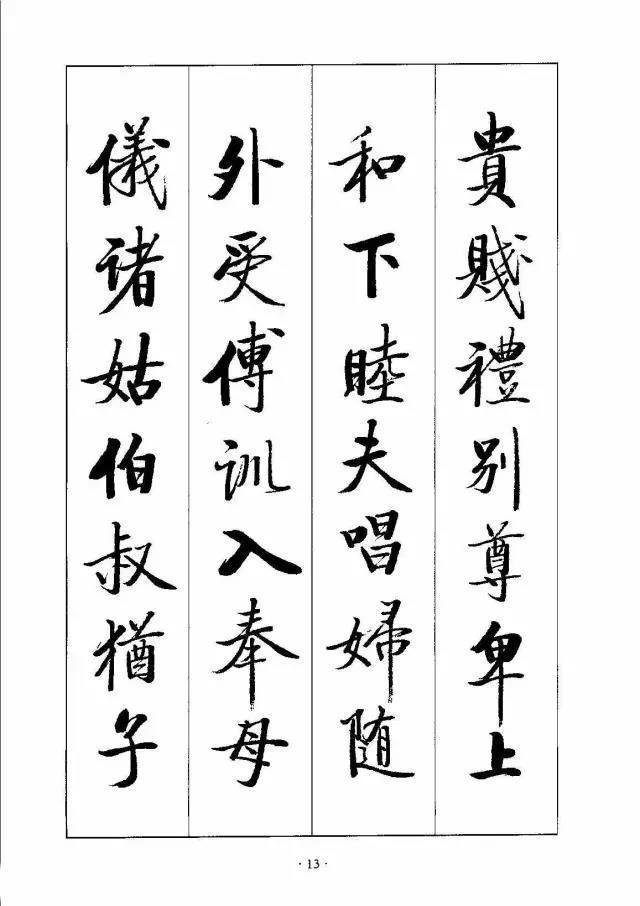 貴賤禮別尊卑上
和下睦夫唱婦随
外受傅訓入奉母
儀诸姑伯叔猶子
·13·